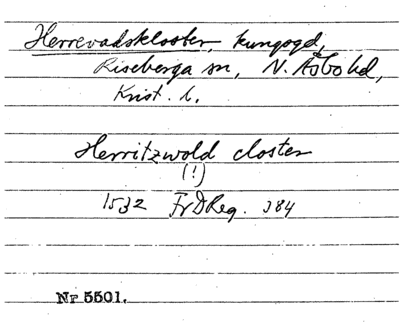 Herrevadskloster, kungsgd,
Riseberga sn, N. Åsbo hd,
Krist. l.
Herritzwold closter
(!)
1532 FrDReg. 384
Nr 5501.